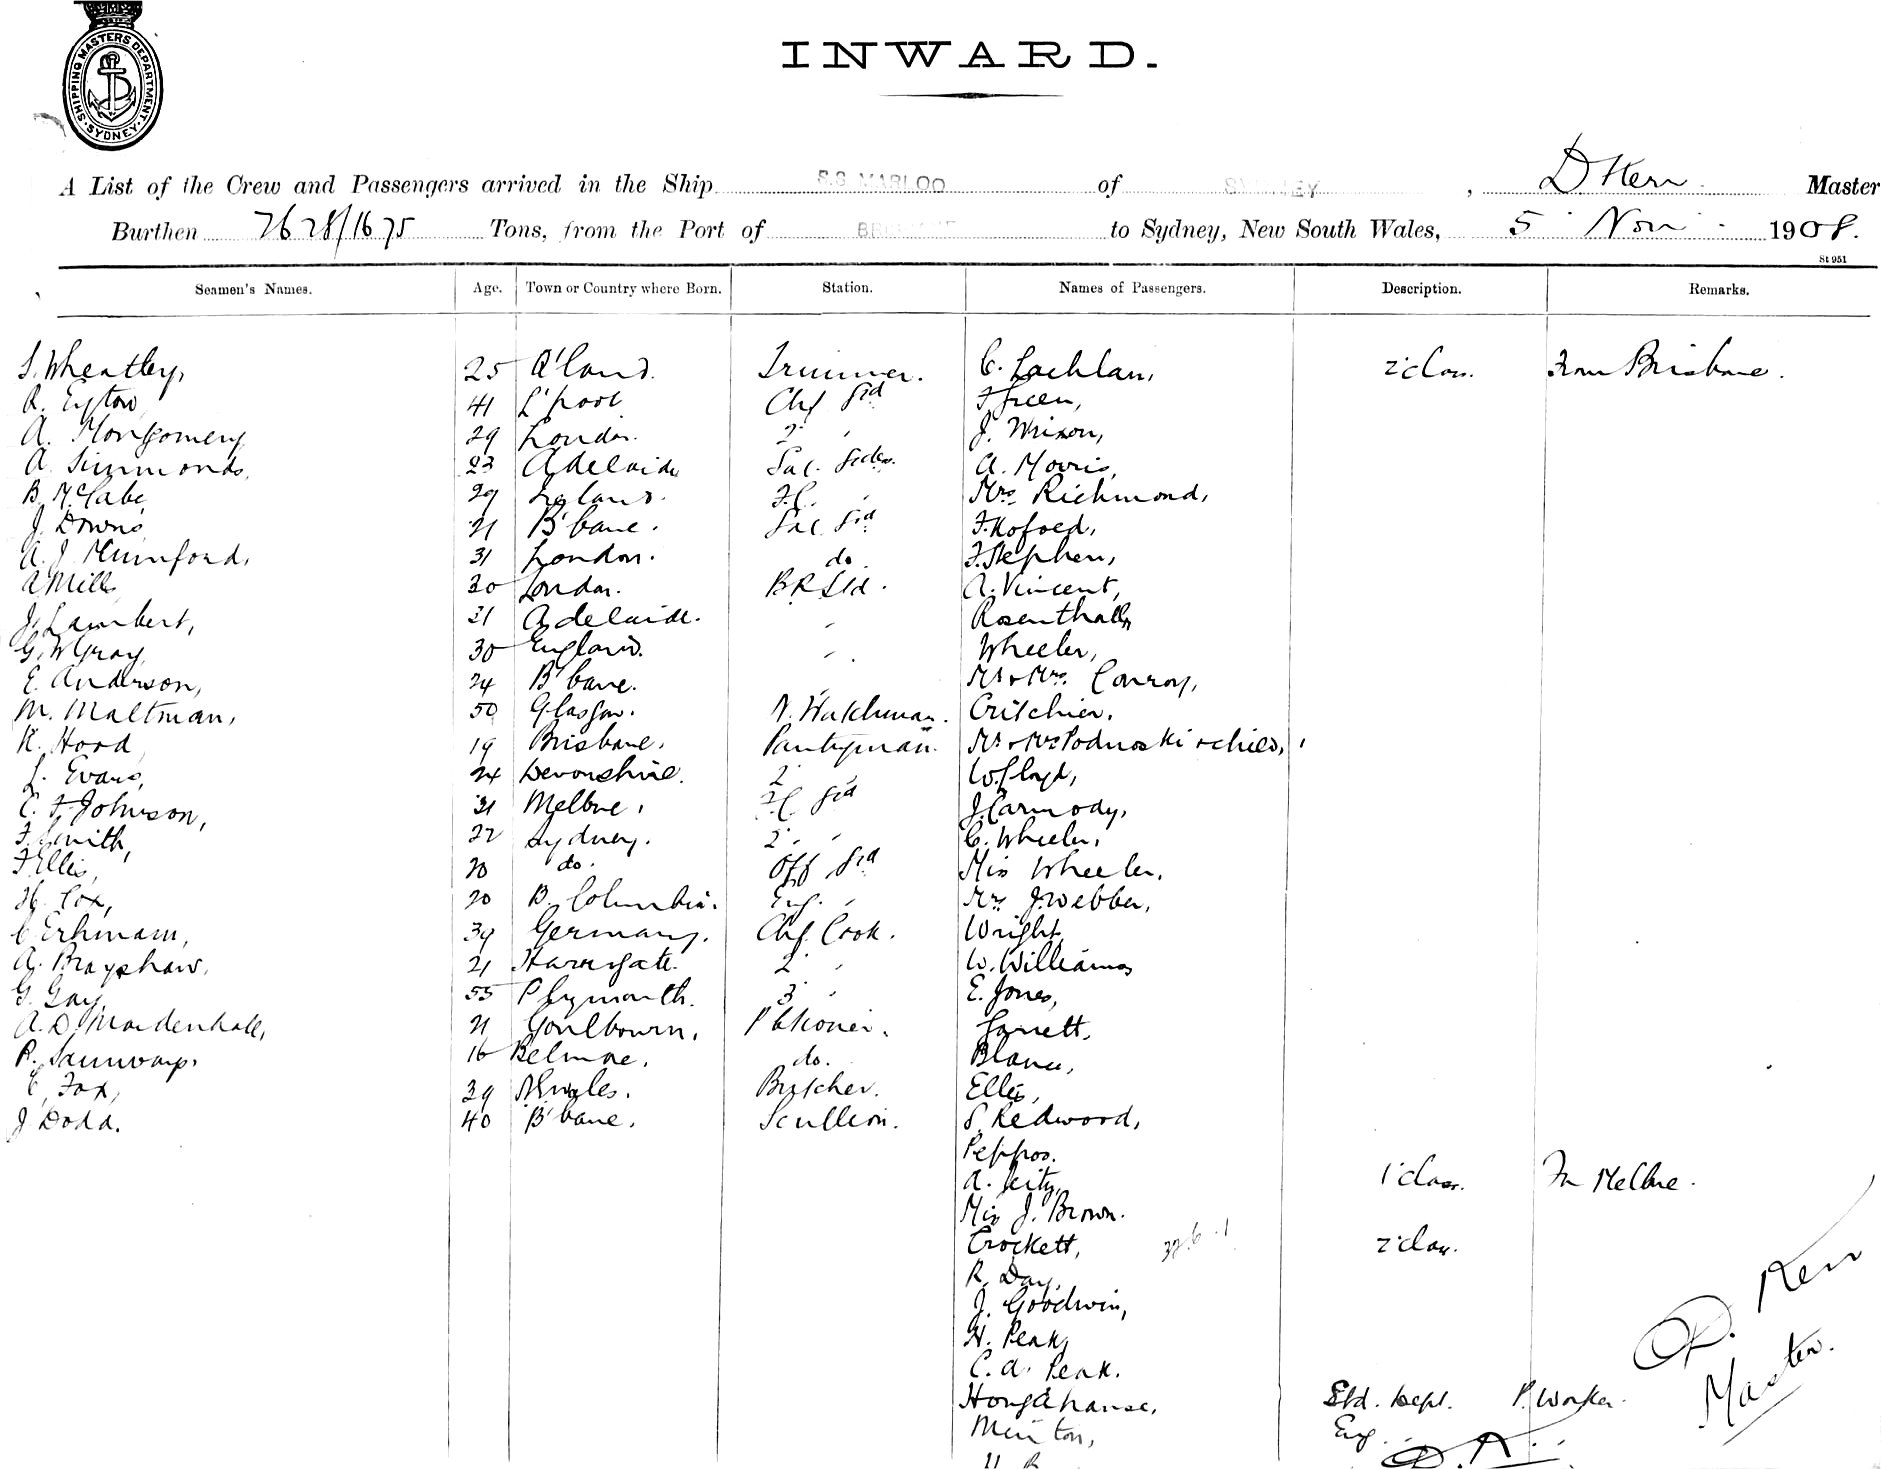 SHIPPING MASTERS DEPARTMENT. SYDNEY
INWARD.
A List of the Crew and Passengers arrived in the Ship S.S MARLOO of SYDNEY, D Kerr Master
Burthen 2628/1675 Tons, from the Port of BRISBANE to Sydney, New South Wales, 5 Nov 1908.
St 951
Seamen's Names. Age. Town or Country where Born. Station. Names of Passengers. Description. Remarks.
S. Wheatley, 25 Q'land. Trimmer. C. Lachlan, 2' class. From Brisbane.
R. Eyton, 41 L'pool Chf Std F Green,
A. Montgomery, 29 London. 2 " J. Wrixon,
A. Simmonds, 23 Adelaide Sal. Stdss. A. Morris,
B. McCabe, 29 F.C. " Mrs Richmond,
J. Downs, 21 B'bane. Sal Std F. Kofoed,
A. J. Mumford, 31 London. do F. Stephen,
A Mills, 30 London. B R Std. A. Vincent,
J. Lambert, 21 Adelaide. " Rosenthall,
G. W Gray, 30 England. " Wheeler,
E. Anderson, 24 B'bane. " Mr & Mrs Conroy,
M. Maltman, 50 Glasgow. N. Watchman. Critchier.
R. Hood, 19 Brisbane. Pantryman. Mr & Mrs Podnoski & child,
L. Evans, 24 Devonshire. 2 " W. Lloyd,
C. F. Johnson, 21 Melbne. F.C Std J. Carmody,
F. Smith, 22 Sydney. 2. " C. Wheeler,
F Ellis, 20 do. Off Std Miss Wheeler.
H. Cox, 20 B. Columbia. Eng. " Mrs J. Webber,
C Erhmann, 39 Germany. Chf. Cook. Wright,
A. Brayshaw, 21 Harrogate. 2 " W. Williams
G. Gay, 55 Plymouth. 3 " E. Jones,
A. D. Mardenhall, 21 Goulbourn. P'tkioner. Garrett.
R. 16 Belmore. do. Blane,
C. Fox, 39 N S Wales. Butcher. Ellis,
J Dodd. 40 B'bane. Scullion. S. Redwood,
Peppos.
A. 1' class. Fr Melbne.
Miss J. Brown.
Crockett, 2' class.
R. Day,
J. Goodwin,
H. Peak,
C. A. Peak.
D. Kerr
Master.
Std. Dept. P. Worker.
Minton,
Eng.